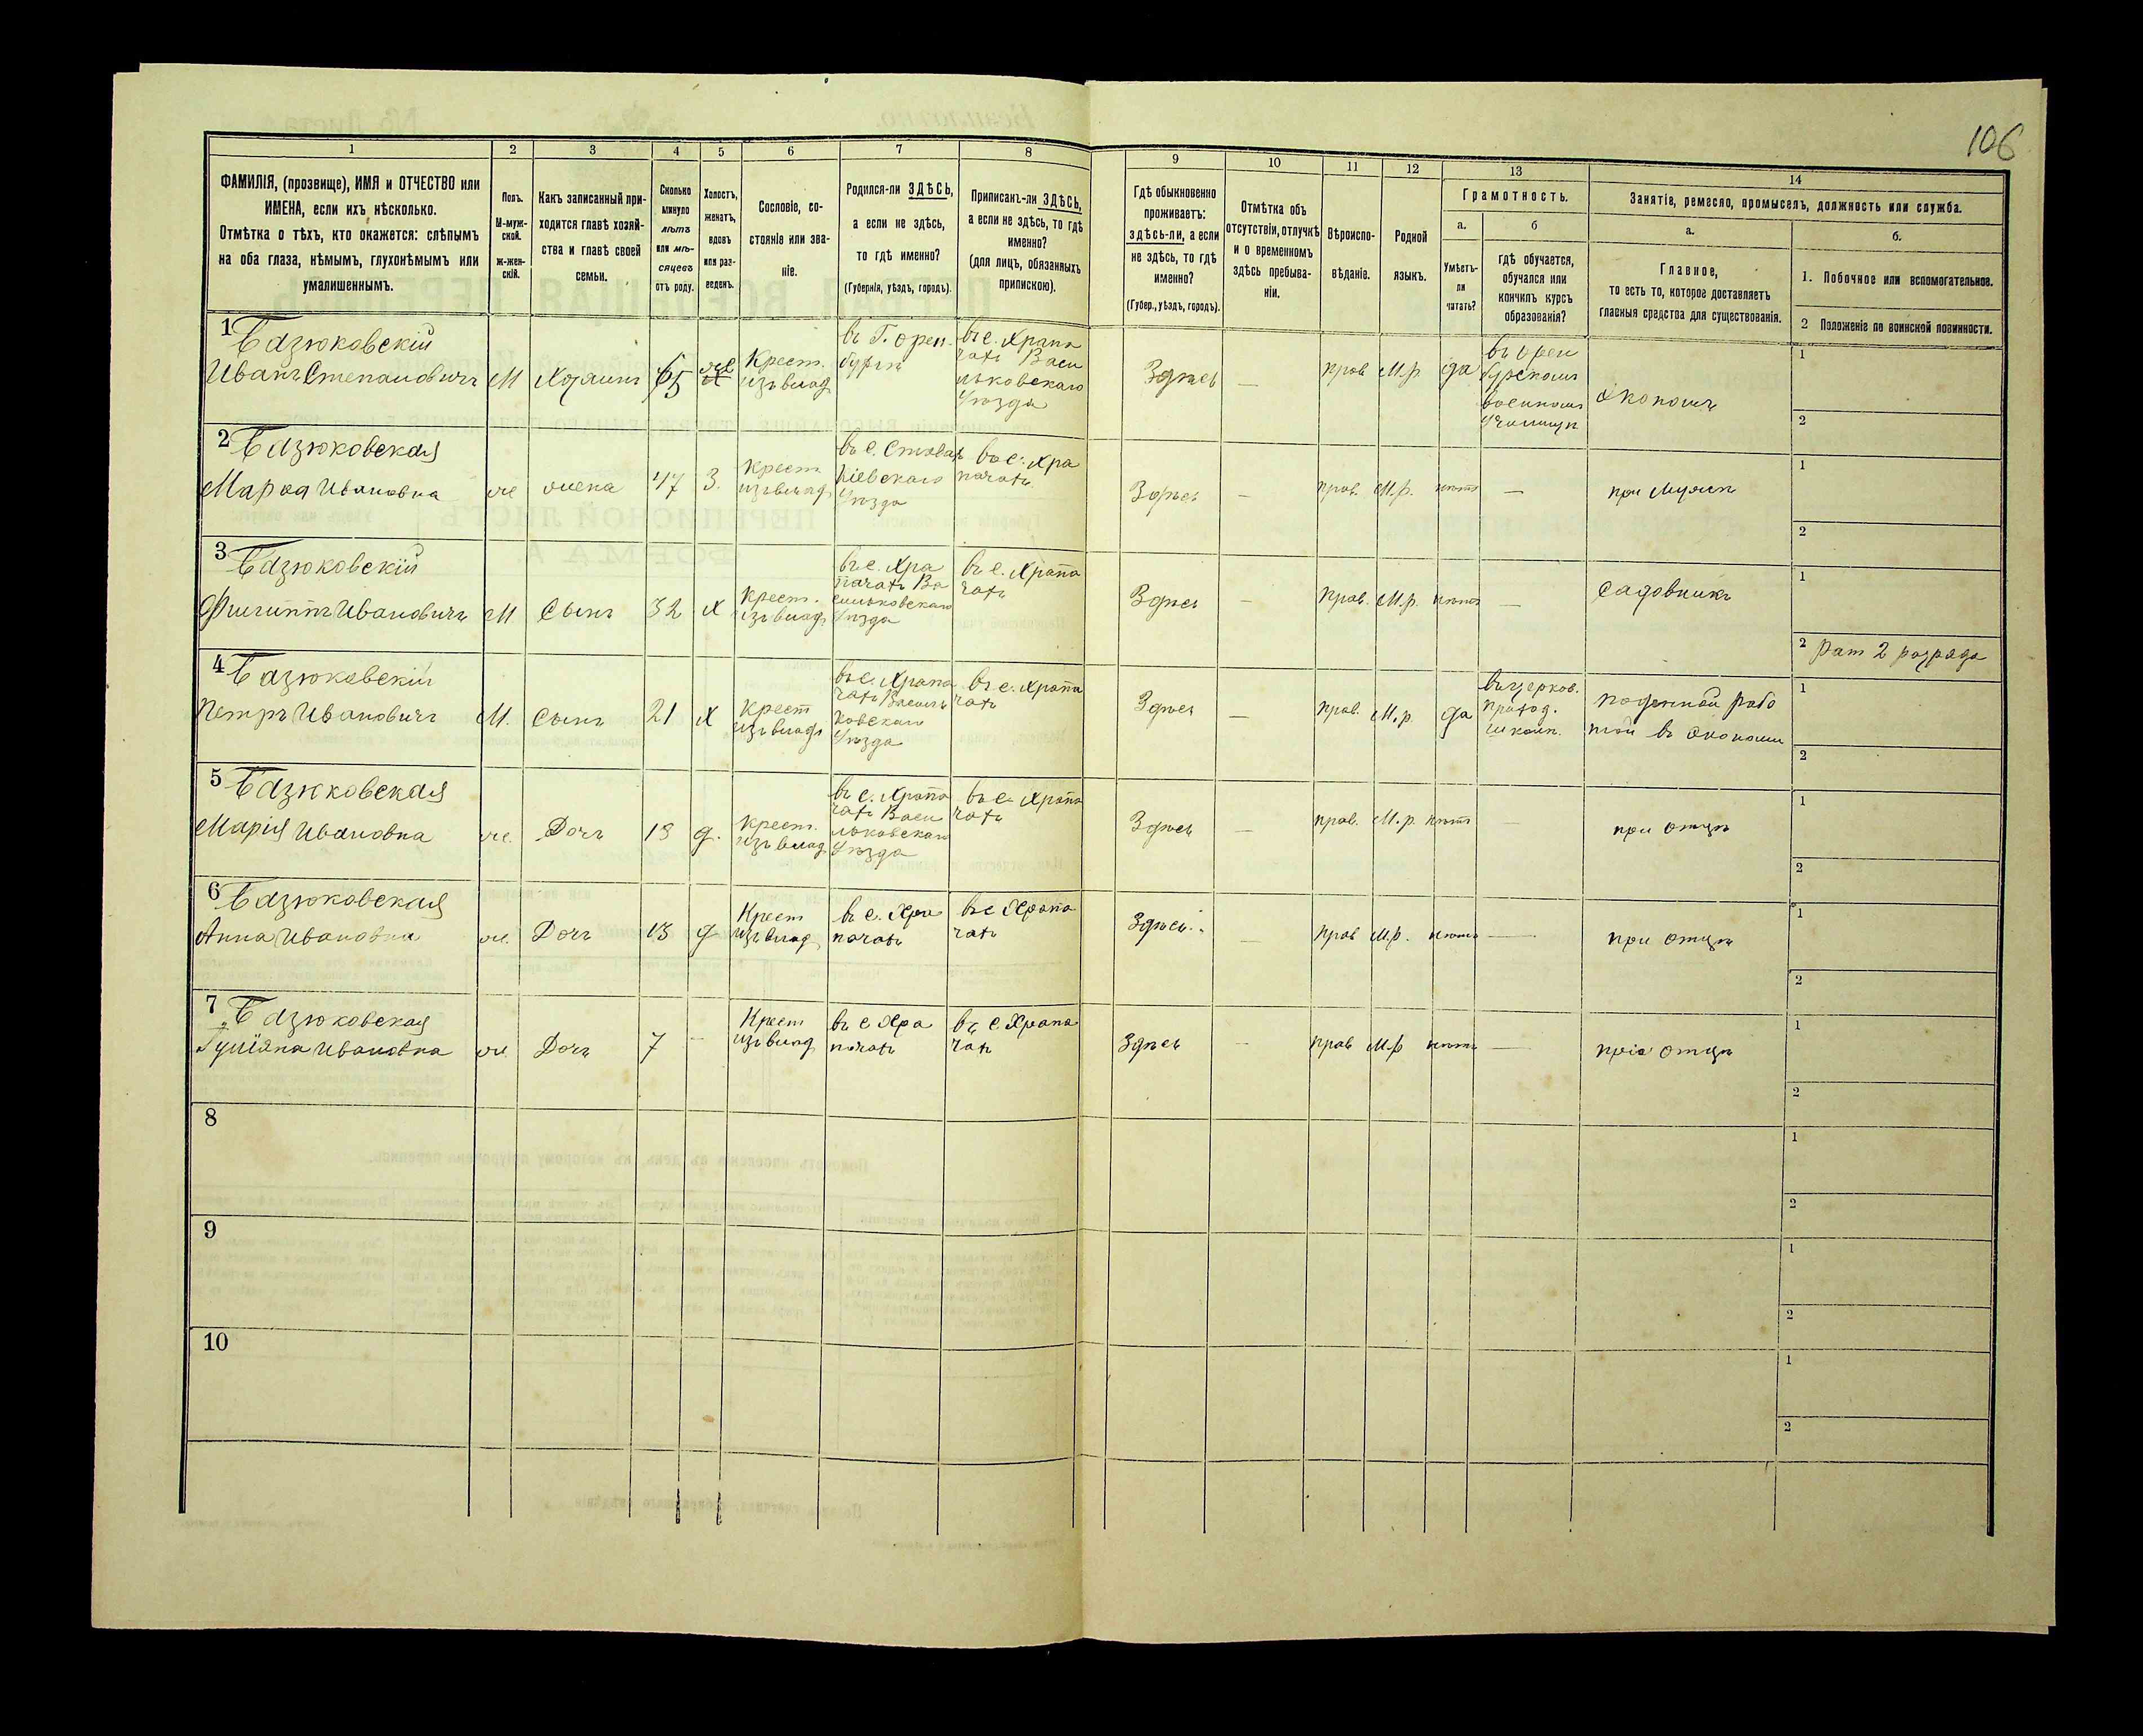 106
1 2 3 4 5 6 7 8 9 10 11 12 13 14
ФАМИЛІЯ, (прозвище), ИМЯ и ОТЧЕСТВО или
ИМЕНА, если ихъ нѣсколько.
Отмѣтка о тѣхъ, кто окажется: слѣпымъ
на оба глаза, нѣмымъ, глухонѣмымъ или
умалишеннымъ.
Полъ.
М-муж-
ской.
ж-жен-
скій.
Какъ записанный при-
ходится главѣ хозяй-
ства и главѣ своей
семьи.
Сколько
минуло
лѣтъ
или мѣ-
сяцевъ
отъ роду.
Холостъ,
женатъ,
вдовъ
или раз-
веденъ.
Сословіе, со-
стояніе или зва-
ніе.
Родился-ли ЗДѢСЬ,
а если не здѣсь,
то гдѣ именно?
(Губернія, уѣздъ, городъ).
Приписанъ-ли ЗДѢСЬ,
а если не здѣсь, то гдѣ
именно?
(для лицъ, обязанныхъ
припискою).
Гдѣ обыкновенно
проживаетъ:
здѣсь-ли, а если
не здѣсь, то гдѣ
именно?
(Губер., уѣздъ, городъ).
Отмѣтка объ
отсутствіи, отлучкѣ
и о временномъ
здѣсь пребыва-
ніи.
Вѣроиспо-
вѣданіе.
Родной
языкъ.
Грамотность.
а.
Умѣетъ-
ли
читать?
б
гдѣ обучается,
обучался или
кончилъ курсъ
образованія?
Занятіе, ремесло, промыселъ, должность или служба.
а.
Главное,
то есть то, которое доставляетъ
главныя средства для существованія.
б.
1. Побочное или вспомогательное.
2 Положеніе по воинской повинности.
1 Базюковскій
Иванъ Степановичъ
М
Хозяинъ
65
Крест.
изъ влад
въ Г. Орен
бургѣ
въ с. Храпа
чахъ Васи
льковскаго
уѣзда
Здѣсь
—
прав
М.р.
да
въ Орен
бургскомъ
военномъ
училищѣ
Экономъ
1
2
2 Базюковская
Марфа Ивановна
ж
жена
47
З.
Крест.
изъ влад
Кіевскаго
уѣзда
въ с. Хра
пачахъ
Здѣсь
—
прав.
М.р.
нѣтъ
—
при мужѣ
1
2
3 Базюковскій
Филиппъ Ивановичъ
М
Сынъ
32
Х
Крест.
изъ влад
въ с. Хра
пачахъ Ва
сильковскаго
уѣзда
въ с. Храпа
чахъ
Здѣсь
—
прав.
М.р.
нѣтъ
—
Садовникъ
1
2 Рат 2 разряда
4 Базюковскій
Петръ Ивановичъ
М.
Сынъ
21
Х
Крест
изъ влад
въ с. Храпа
чахъ Василь
ковскаго
уѣзда
въ с. Храпа
чахъ
Здѣсь
—
прав.
М.р.
да
въ церков.
приход.
школѣ.
поденной рабо
той въ экономи
1
2
5 Базюковская
Марія Ивановна
ж.
Дочь
18
д.
Крест.
изъ влад
въ с. Храпа
чахъ Васи
льковскаго
уѣзда
въ с. Храпа
чахъ
Здѣсь
—
прав.
М.р.
нѣтъ
—
при отцѣ
1
2
6 Базюковская
Анна Ивановна
ж.
Дочь
13
д
Крест
изъ влад
въ с. Хра
пачахъ
въ с Храпа
чахъ
Здѣсь
—
прав
М.р.
нѣтъ
—
при отцѣ
1
2
7 Базюковская
Ивановна
ж.
Дочь
7
—
Крест
изъ влад
въ с Хра
пачахъ
въ с Храпа
чахъ
Здѣсь
—
прав
М.р
нѣтъ
—
при отцѣ
1
2
8
1
2
9
1
2
10
1
2